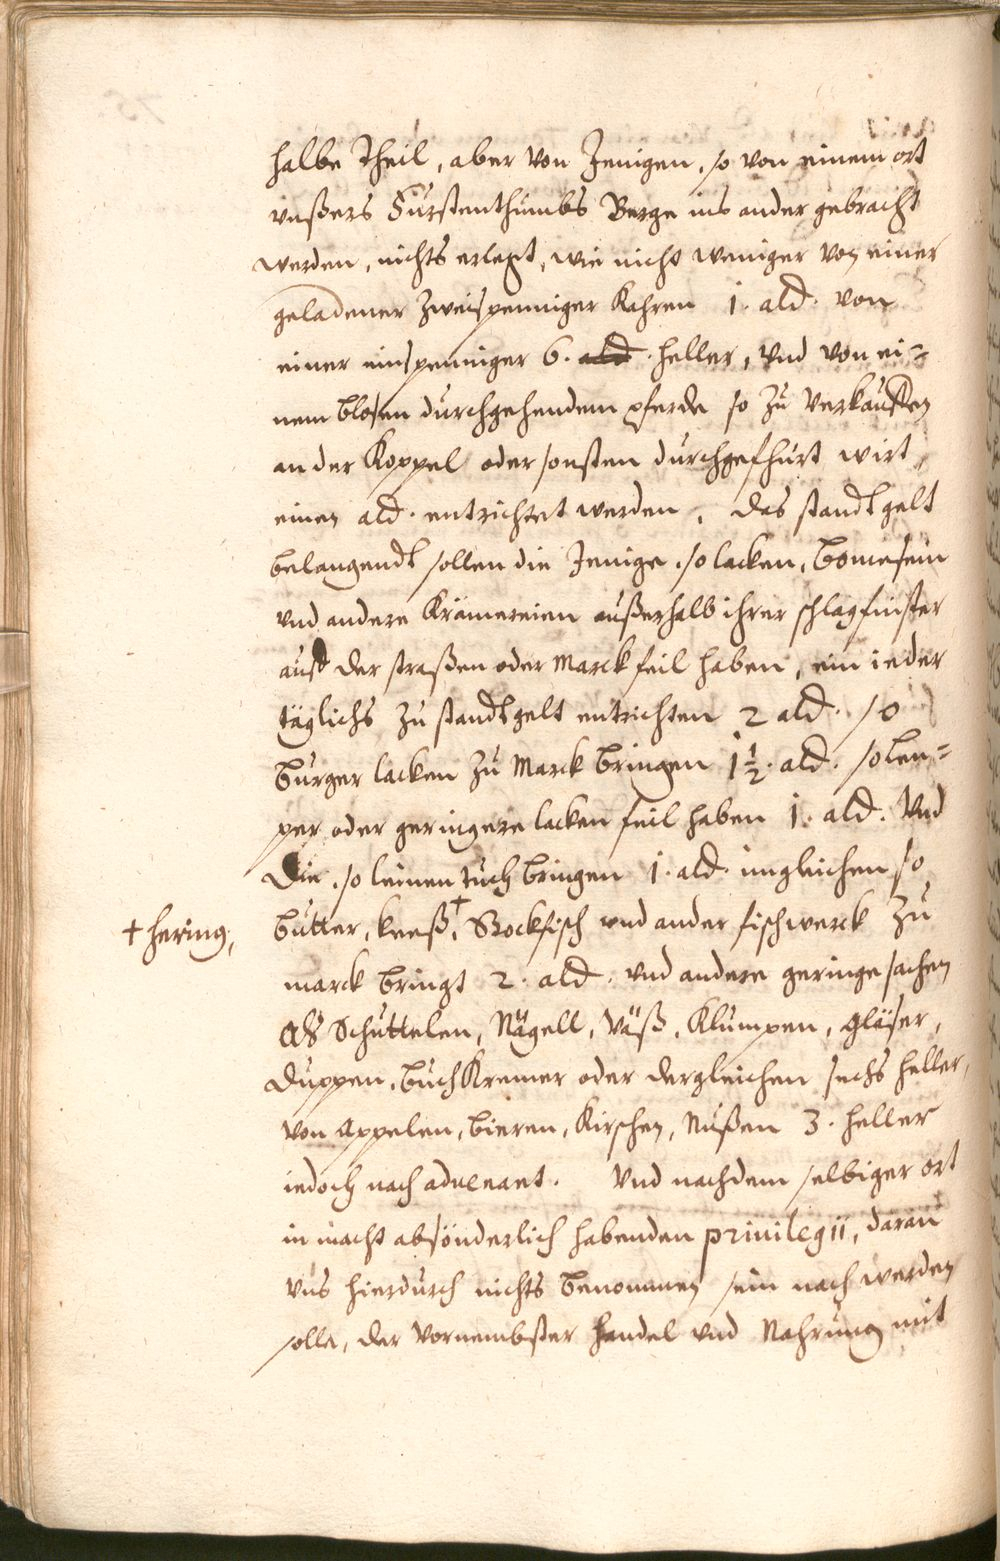 halbe Theil, aber von Jenigen, so von einem ort
vnßers Fürstenthumbs Berge ins ander gebracht
werden, nichts erlegt, wie nicht weniger von einer
geladener zweispenniger Kahren 1. ald. von
einer einspenniger 6. ald. heller, vnd von ei=
nem blosen durchgehendem pferde so zu verkauffen
an der Koppel oder sonsten durchgefhurt wirt,
einen ald. entrichtet werden, das standtgelt
belangendt sollen die Jenige, so lacken, bomesein
vnd andere Krämereien außerhalb ihrer schlagfinster
auff der straßen oder Marck feil haben, ein ieder
täglichs zu standtgelt entrichten 2 ald. so
burger lacken zu Marck bringen 1½. ald. so len=
per oder geringere lacken feil haben 1. ald. Vnd
Die, so leinen tuch bringen 1. ald. imgleichen so
butter, keeß,+ Stockfisch vnd ander fischwerck zu
+ hering,
marck bringt 2. ald. vnd andere geringe sachen
Als Schuttelen, Nägell, Väß, Klumpen, gläser,
Duppen, buchKremer oder dergleichen sechs heller,
von Appelen, bieren, Kirschen, Nußen 3. heller
iedoch nach aduenant. Vnd nachdem selbiger ort
in macht absönderlich habenden priuilegii, daran
vns hierdurch nichts benommen sein nach werden
solle, der vornembster handel vnd Nahrung mit